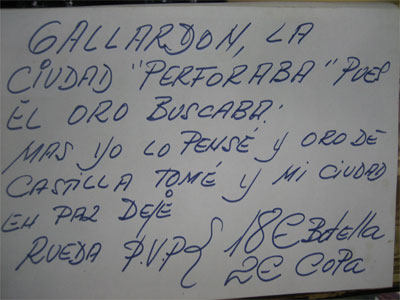 GALLARDON, LA
CIUDAD "PERFORABA" PUES
EL ORO BUSCABA.
MAS YO LO PENSÉ Y ORO DE
CASTILLA TOMÉ Y MI CIUDAD
EN PAZ DEJÉ
RUEDA P.V.P { 18€ Botella
2€ COPA